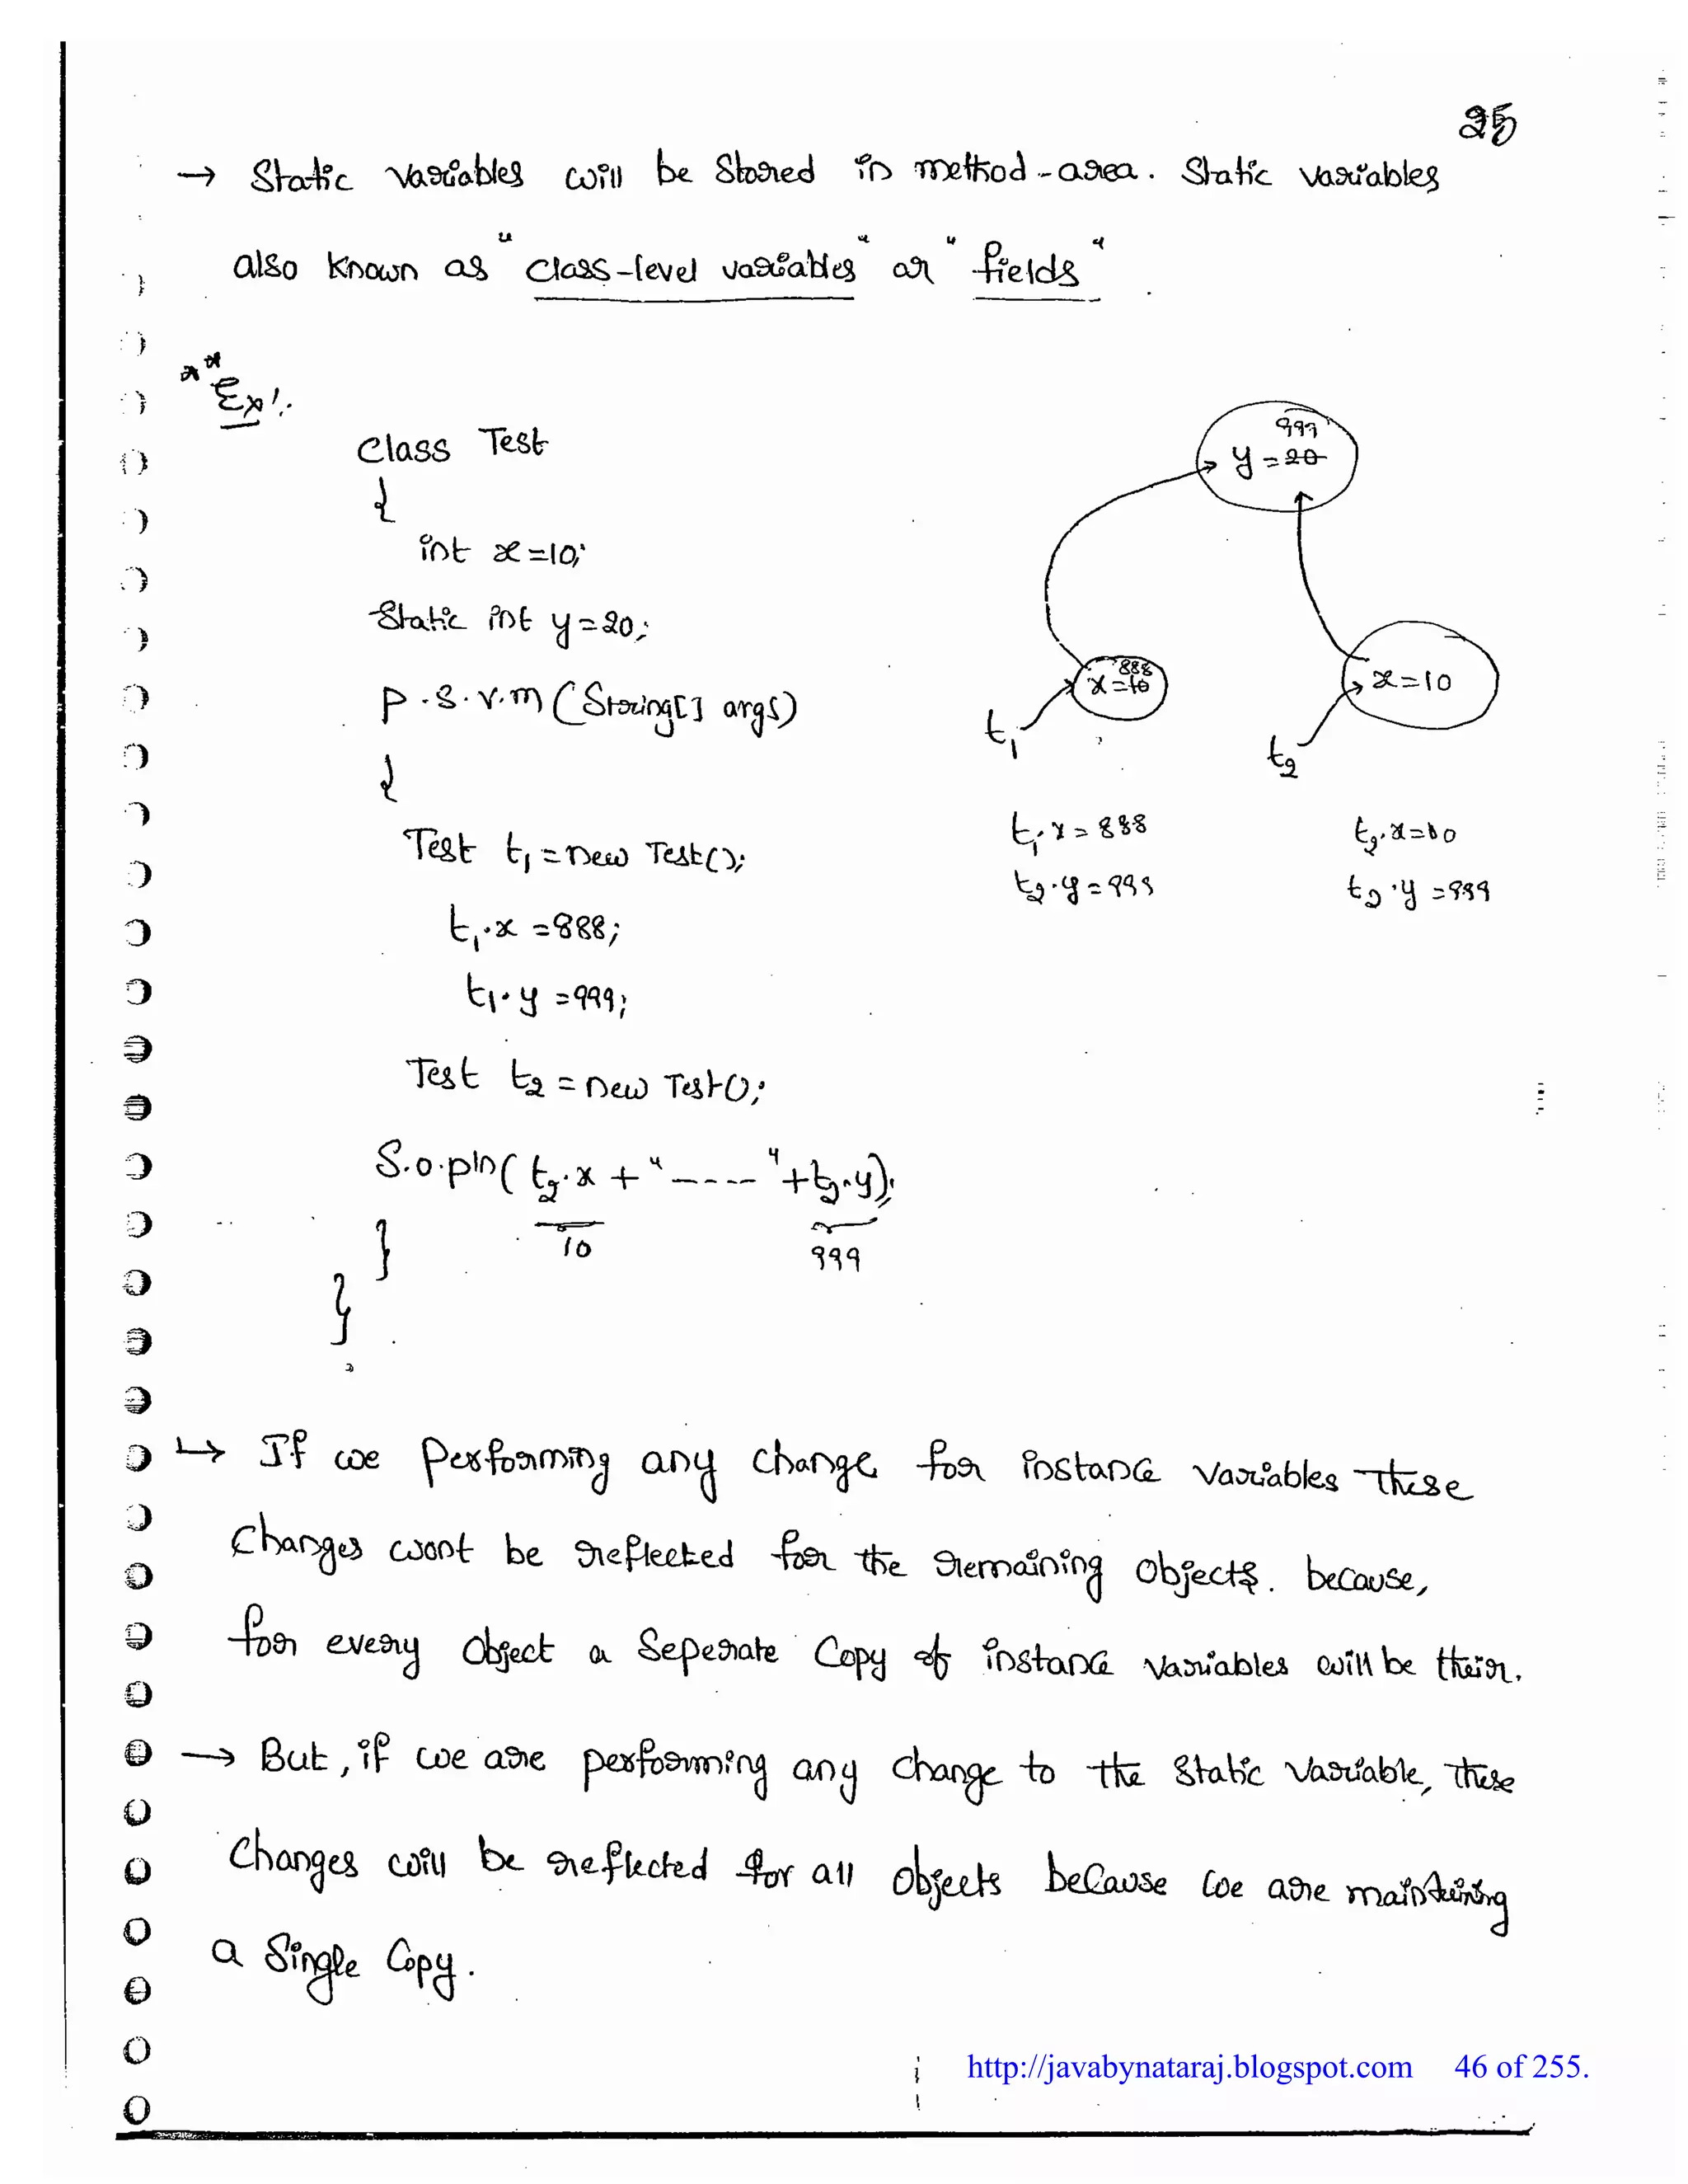 25
→ Static variables will be Stored in method-area. Static variables
also known as "class-level variables" or "fields".
** Ex:
Class Test
{
int x=10;
Static int y=20;
P.S.V.m (String[] args)
{
Test t1 = new Test();
t1.x = 888;
t1.y = 999;
Test t2 = new Test();
S.o.pln( t2.x + "-----" + t2.y);
10 999
}
}
999
y = 20
888
x = 10
x = 10
t1
t2
t1.x = 888 t2.x = 10
t2.y = 999 t2.y = 999
↳ If we performing any change for instance variables these
changes wont be reflected for the remaining objects. because,
for every object a Seperate Copy of instance variables will be their.
→ But, if we are performing any change to the static variable, these
changes will be reflected for all objects because we are maintaining
a Single Copy.
http://javabynataraj.blogspot.com 46 of 255.